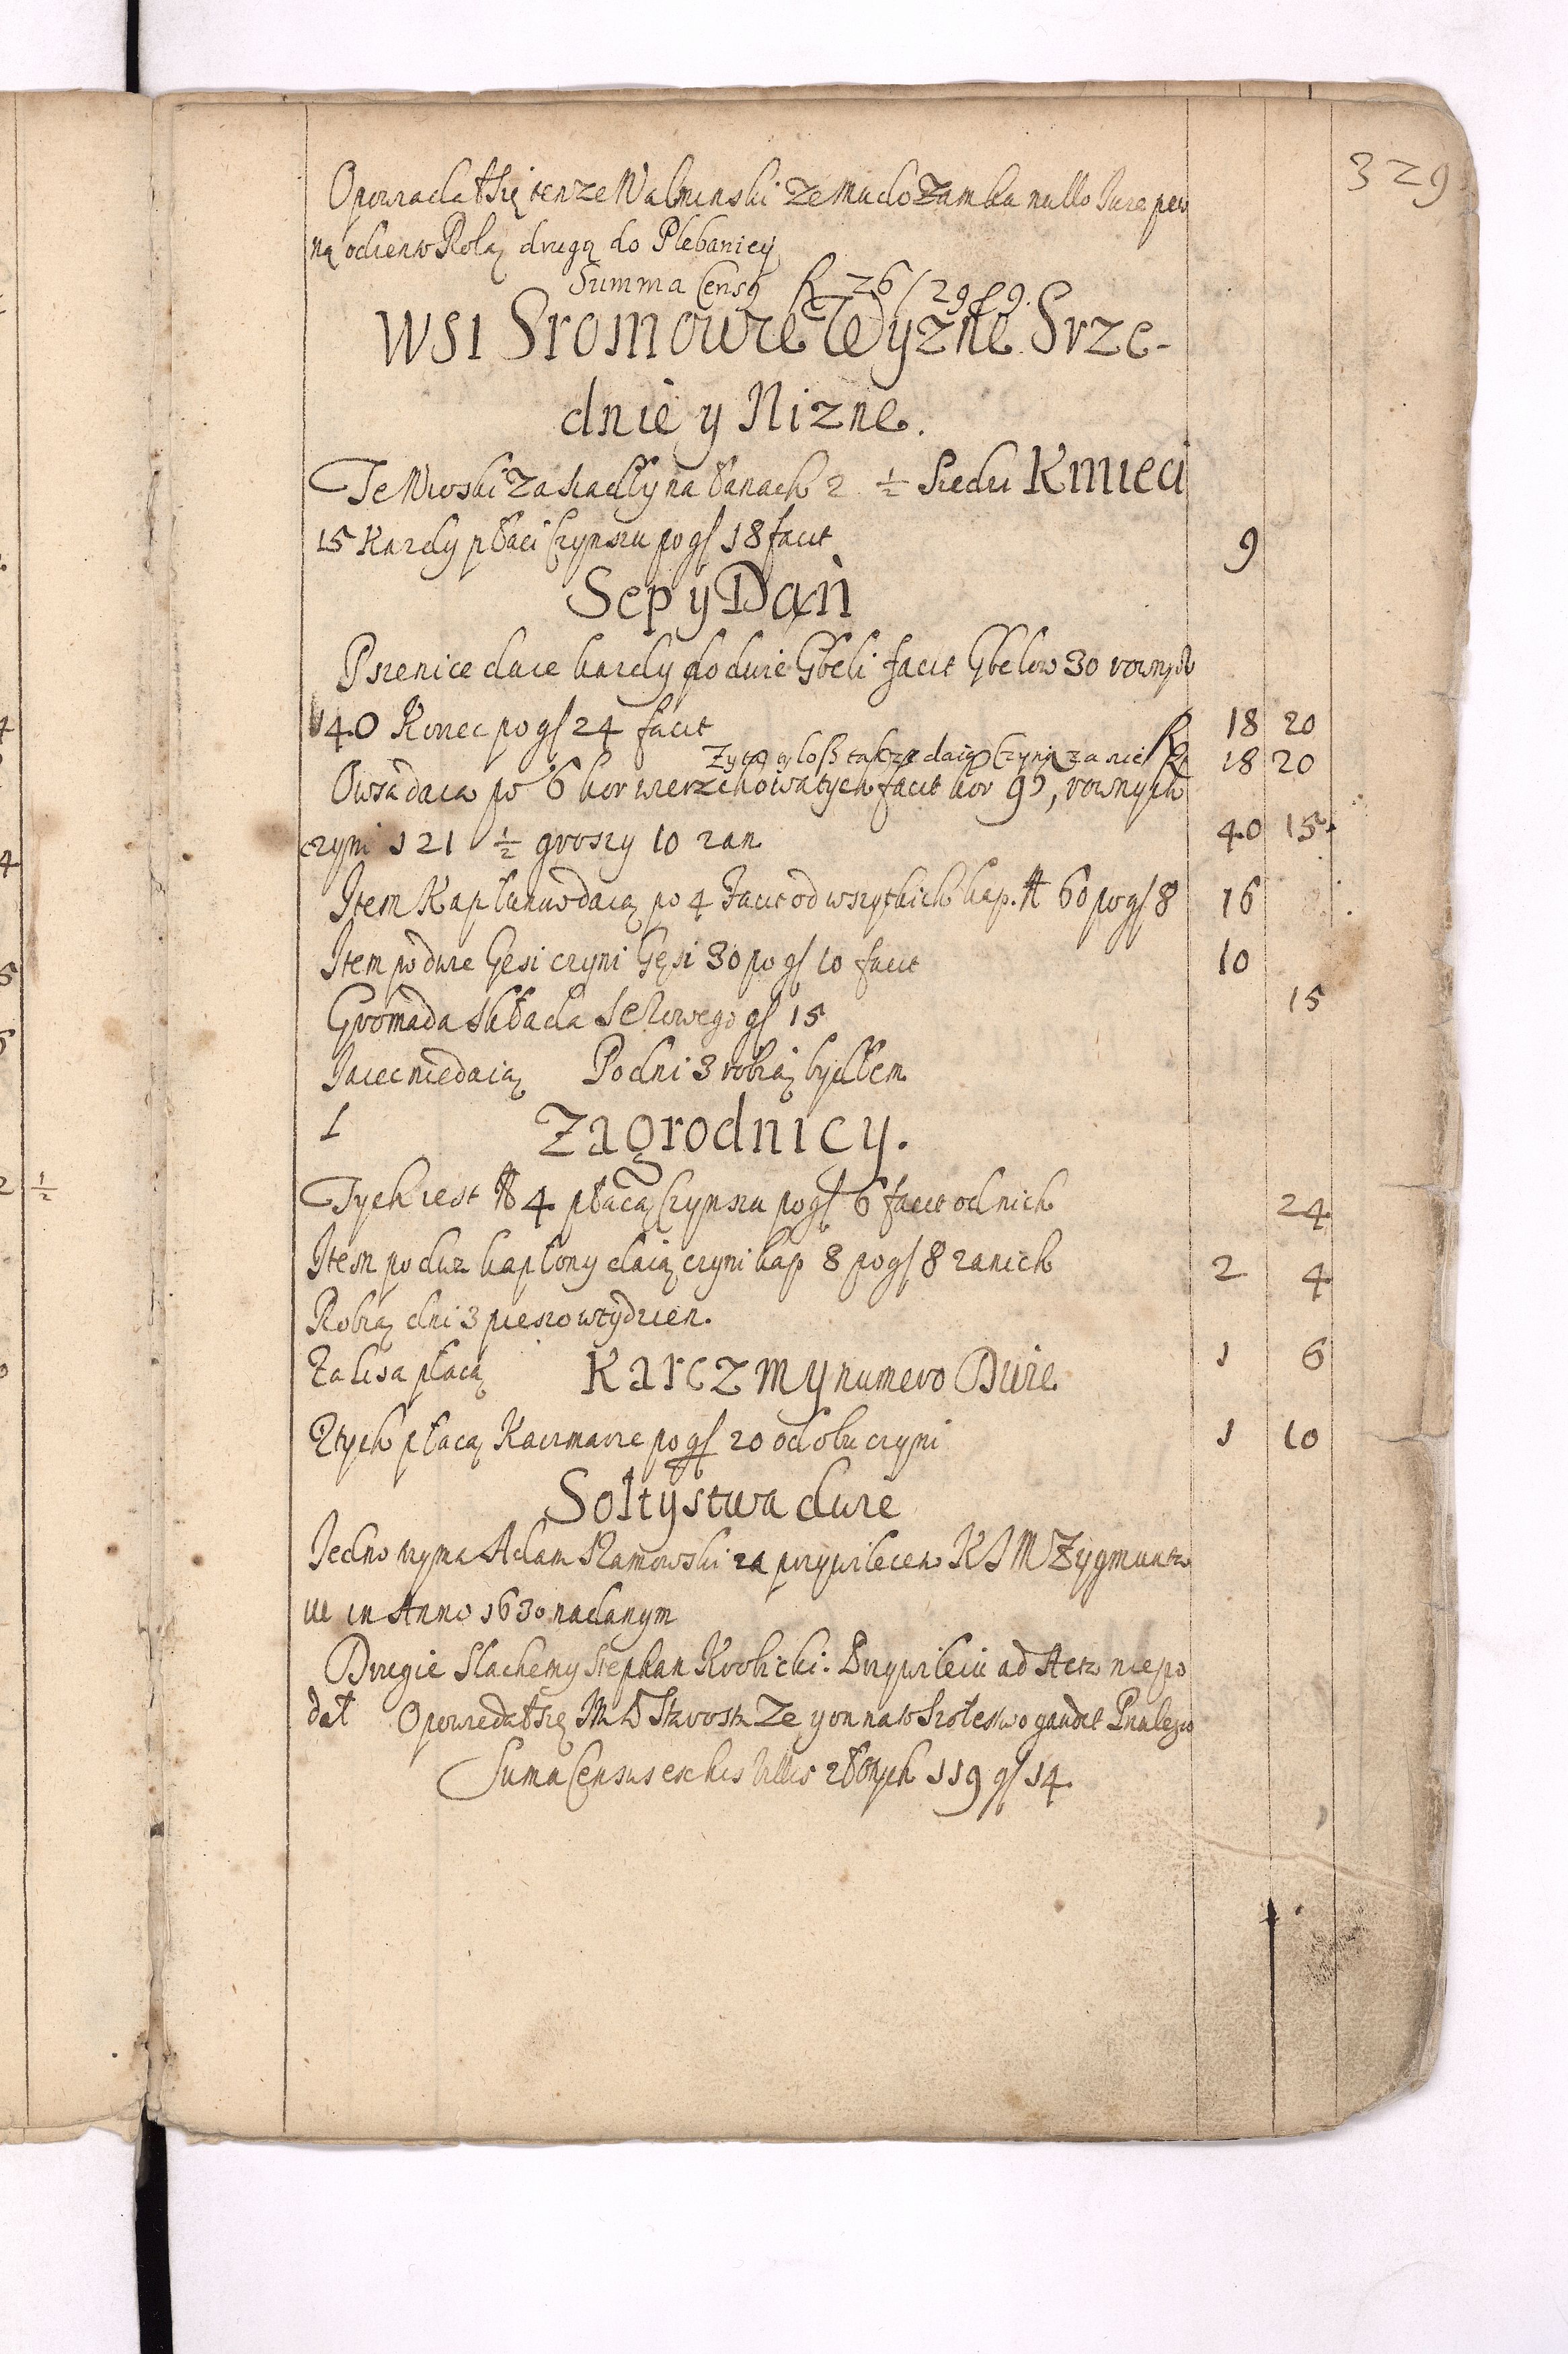 329
Opowiadał się tenze Walminski ze ma do Zamku nullo Iure pew
ną odiento Rolą drugą do Plebaniey
Summa Censg 
WSI Sromowce Wyzne Srze-
dnie y Nizne.
Te Wioski zasiadły na Łanach 2 ½ Siedzi Kmieci
15 Kazdy płaci Czynszu po gʃ 18 facit 9
Sep y Dań
Pszenice daie kazdy po dwie Gbeli facit Gbelow 30 rownych
40 Korzec po gʃ 24 facit 18 20
Zyta y losz takze daią czyni za nie 18 20
Owsa daią po 6 kor wierzchowatych facit kor 90, rownych
czyni 121 ½ groszy 10 zan 40 15
Item Kapłunow daią po 4 facit od wszytkich kap. 60 po gʃ 8 16
Item po dwie Gesi czyni Gęsi 30 po gʃ 10 facit 10
Gromada składa Serowego gʃ 15 15
Jaiec nie daią Po dni 3 robią bydłem
Zagrodnicy.
Tych iest 4 płacą Czynszu po gʃ 6 facit od nich 24
Item po dwa kapłony daią czyni kap 8 po gʃ 8 za nich 2 4
Robią dni 3 pieszo w tydzien.
Za lisa płacą 1 6
Karczmy numero Dwie
Z tych płacą Kaczmarze po gʃ 20 od obu czyni 1 10
Sołtystwa dwie
Jedno trzyma Adam Ramowski za przywileiem K J M Zygmunto
wi in Anno 1630 nadanym
Drugie Slachetny Stephan Krobicki. Przywileiu ad Acta nie po
dał Opowiedał się Starosta Ze y on na to Szołtestwo gaudet
Suma Census ex his Villis złotych 119 gʃ 14